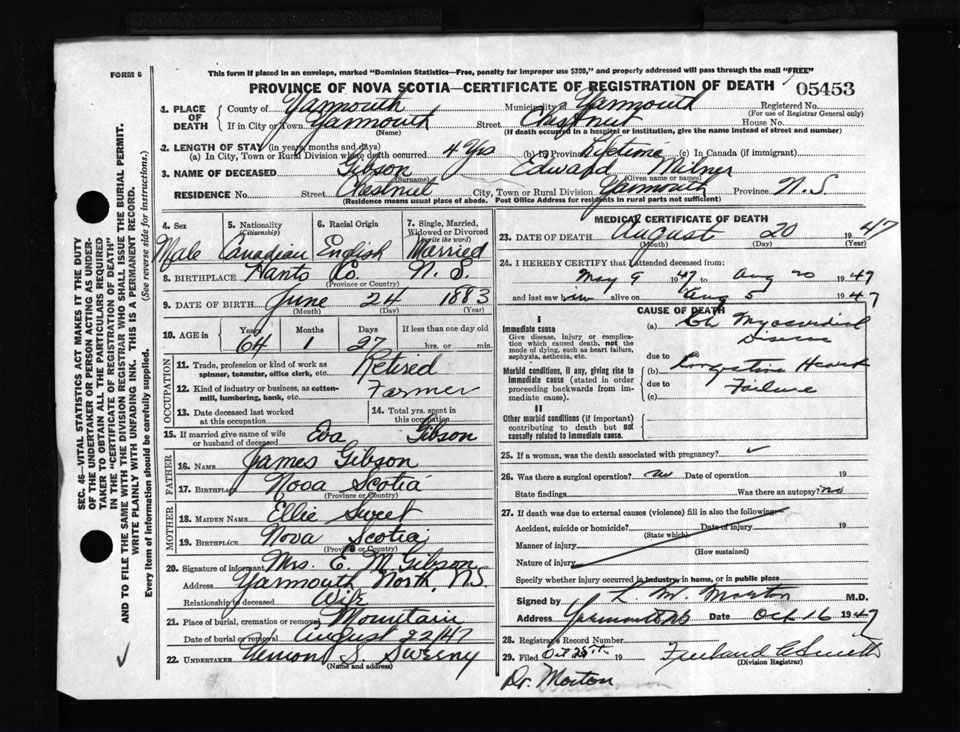 FORM 6
This form if placed in an envelope, marked "Dominion Statistics—Free, penalty for improper use $300," and properly addressed will pass through the mail "FREE"
PROVINCE OF NOVA SCOTIA—CERTIFICATE OF REGISTRATION OF DEATH
05453
1. PLACE OF DEATH
County of Yarmouth Municipality Yarmouth Registered No.
(For use of Registrar General only)
If in City or Town Yarmouth Street Chestnut House No.
(Name) (If death occurred in a hospital or institution, give the name instead of street and number)
2. LENGTH OF STAY (in years, months and days)
(a) In City, Town or Rural Division where death occurred 4 Yrs (b) In Province Lifetime (c) In Canada (if immigrant)
3. NAME OF DECEASED Gibson Edward Milner
(Surname) (Given name or names)
RESIDENCE No. Street Chestnut City, Town or Rural Division Yarmouth Province N.S.
(Residence means usual place of abode. Post Office Address for residents in rural parts not sufficient)
4. Sex 5. Nationality (Citizenship) 6. Racial Origin 7. Single, Married, Widowed or Divorced (write the word)
Male Canadian English Married
8. BIRTHPLACE Hants Co. N.S.
(Province or Country)
9. DATE OF BIRTH June 24 1883
(Month) (Day) (Year)
10. AGE in Years Months Days If less than one day
64 1 27 hrs. or min.
OCCUPATION
11. Trade, profession or kind of work as spinner, teamster, office clerk, etc. Retired
12. Kind of industry or business, as cotton-mill, lumbering, bank, etc. Farmer
13. Date deceased last worked at this occupation
14. Total yrs. spent in this occupation
15. If married give name of wife or husband of deceased Eva Gibson
FATHER
16. NAME James Gibson
17. Birthplace Nova Scotia
(Province or Country)
MOTHER
18. MAIDEN NAME Ellie Sweet
19. Birthplace Nova Scotia
(Province or Country)
20. Signature of informant Mrs. E. M. Gibson
Address Yarmouth North, N.S.
Relationship to deceased Wife
21. Place of burial, cremation or removal Mountain
Date of burial or removal August 22/47
22. UNDERTAKER Vernon S. Sweeny
(Name and address)
MEDICAL CERTIFICATE OF DEATH
23. DATE OF DEATH August 20 1947
(Month) (Day) (Year)
24. I HEREBY CERTIFY that I attended deceased from:
May 9 1947 to Aug 20 1947
and last saw him alive on Aug 5 1947
CAUSE OF DEATH
I
Immediate cause
Give disease, injury or complication which caused death, not the mode of dying, such as heart failure, asphyxia, asthenia, etc.
(a) Ch Myocardial Disease
due to
Morbid conditions, if any, giving rise to immediate cause (stated in order proceeding backwards from immediate cause).
(b) Congestive Heart
due to Failure
(c)
II
Other morbid conditions (if important) contributing to death but not causally related to immediate cause.
25. If a woman, was the death associated with pregnancy? ✓
26. Was there a surgical operation? no Date of operation 19
State findings Was there an autopsy? no
27. If death was due to external causes (violence) fill in also the following:
Accident, suicide or homicide? Date of injury 19
(State which)
Manner of injury
(How sustained)
Nature of injury
Specify whether injury occurred in industry, in home, or in public place
Signed by L. M. Morton M.D.
Address Yarmouth NS Date Oct 16 1947
28. Registrar's Record Number
29. Filed Oct 25th 19
(Division Registrar)
Dr. Morton
SEC. 46—VITAL STATISTICS ACT MAKES IT THE DUTY
OF THE UNDERTAKER OR PERSON ACTING AS UNDER-
TAKER TO OBTAIN ALL THE PARTICULARS REQUIRED
IN THE "CERTIFICATE OF REGISTRATION OF DEATH"
AND TO FILE THE SAME WITH THE DIVISION REGISTRAR WHO SHALL ISSUE THE BURIAL PERMIT.
WRITE PLAINLY WITH UNFADING INK. THIS IS A PERMANENT RECORD.
Every item of information should be carefully supplied. (See reverse side for instructions.)